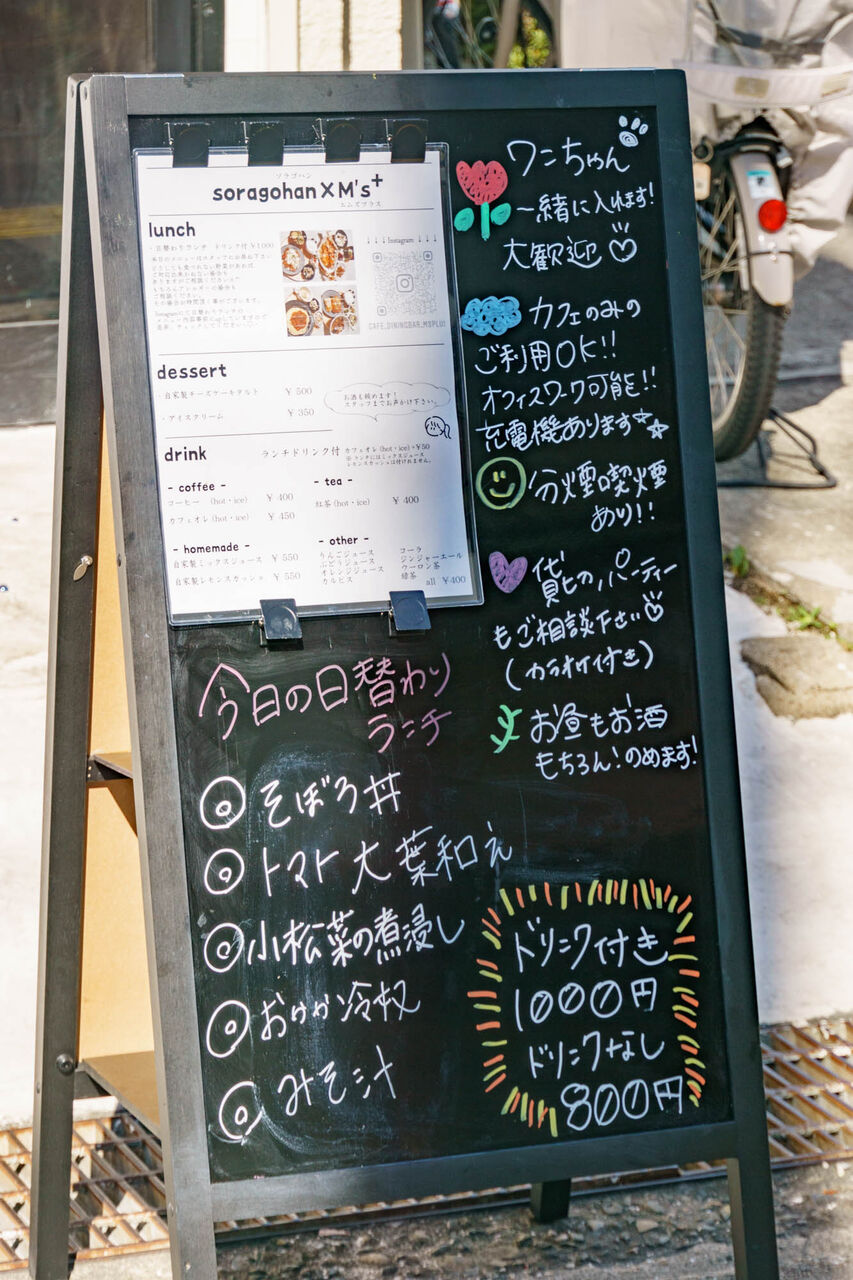 ソラゴハン
soragohan×M's+
エムズプラス
lunch
・日替わりランチ ドリンク付 ¥1000
↓↓↓Instagram↓↓↓
CAFE_DININGBAR_MSPLUS
dessert
・自家製チーズケーキタルト ¥ 500
・アイスクリーム ¥ 350
お酒も飲めます！
スタッフまでお声かけ下さい。
drink
ランチドリンク付 カフェオレ(hot・ice)+¥50
※ランチにはミックスジュース
レモンスカッシュは付けれません。
- coffee -
コーヒー (hot・ice) ¥ 400
カフェオレ(hot・ice) ¥ 450
- tea -
紅茶(hot・ice) ¥ 400
- homemade -
自家製ミックスジュース ¥ 550
自家製レモンスカッシュ ¥ 550
- other -
りんごジュース
ぶどうジュース
オレンジジュース
カルピス
コーラ
ジンジャーエール
ウーロン茶
緑茶 all ¥400
ワンちゃん
一緒に入れます!
大歓迎
カフェのみの
ご利用OK!!
オフィスワーク可能!!
充電機あります
分煙喫煙
あり!!
貸しのパーティー
もご相談下さい
(カラオケ付き)
お昼もお酒
もちろん!のめます!
今日の日替わり
ランチ
◎そぼろ丼
◎トマト大葉和え
◎小松菜の煮浸し
◎おかか冷奴
◎みそ汁
ドリンク付き
1000円
ドリンクなし
800円